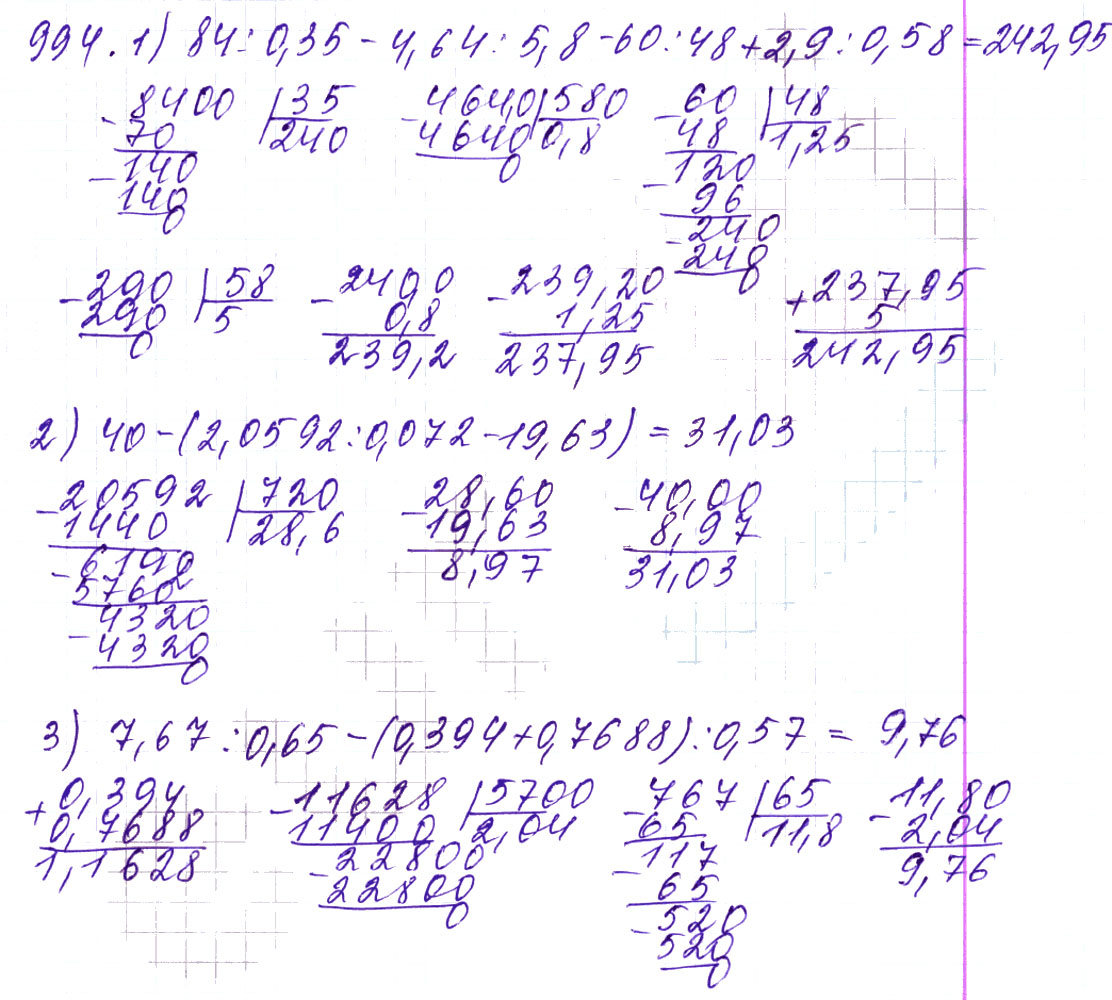 994. 1) 84:0,35-4,64:5,8-60:48+2,9:0,58=242,95
-8400 |35 -464,0|580 -60 |48
70 240 4640 0,8 48 1,25
-140 0 120
140 -96
0 -240
240
0
-290 |58 -240,0 -239,20 +237,95
290 5 0,8 1,25 5
0 239,2 237,95 242,95
2) 40-(2,0592:0,072-19,63)=31,03
-20592 |720 -28,60 -40,00
1440 28,6 19,63 8,97
-6192 8,97 31,03
5760
-4320
4320
0
3) 7,67:0,65-(0,394+0,7688):0,57= 9,76
+0,394 -11628 |5700 -767 |65 -11,80
0,7688 11400 2,04 65 11,8 2,04
1,1628 -22800 -117 9,76
22800 65
0 -520
520
0